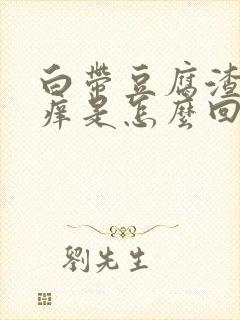 白带豆腐渣
痒是怎麼回
劉先生